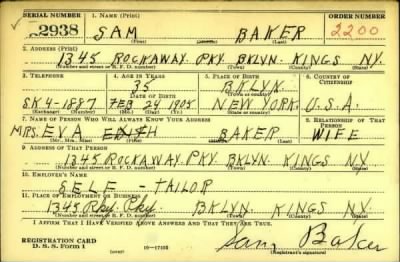 SERIAL NUMBER 1. NAME (Print) ORDER NUMBER
2938 SAM BAKER 2200
(First) (Middle) (Last)
2. ADDRESS (Print)
1345 ROCKAWAY PKY. BKLYN. KINGS NY.
(Number and street or R. F. D. number) (Town) (County) (State)
3. TELEPHONE 4. AGE IN YEARS 5. PLACE OF BIRTH 6. COUNTRY OF CITIZENSHIP
35 BKLYN
DATE OF BIRTH (Town or county)
SK 4-1887 FEB 24 1905 NEW YORK. U.S.A.
(Exchange) (No.) (Mo.) (Day) (Yr.) (State or country)
7. NAME OF PERSON WHO WILL ALWAYS KNOW YOUR ADDRESS 8. RELATIONSHIP OF THAT PERSON
MRS. EVA BAKER WIFE
(Mr., Mrs., Miss) (First) (Middle) (Last)
9. ADDRESS OF THAT PERSON
1345 ROCKAWAY. PKY. BKLYN. KINGS NY
(Number and street or R. F. D. number) (Town) (County) (State)
10. EMPLOYER'S NAME
SELF - TAILOR
11. PLACE OF EMPLOYMENT OR BUSINESS
1345 Rky. Pky. BKLYN. KINGS NY
(Number and street or R. F. D. number) (Town) (County) (State)
I AFFIRM THAT I HAVE VERIFIED ABOVE ANSWERS AND THAT THEY ARE TRUE.
REGISTRATION CARD
D. S. S. Form 1 (over) 16—17105 Sam Baker
(Registrant's signature)